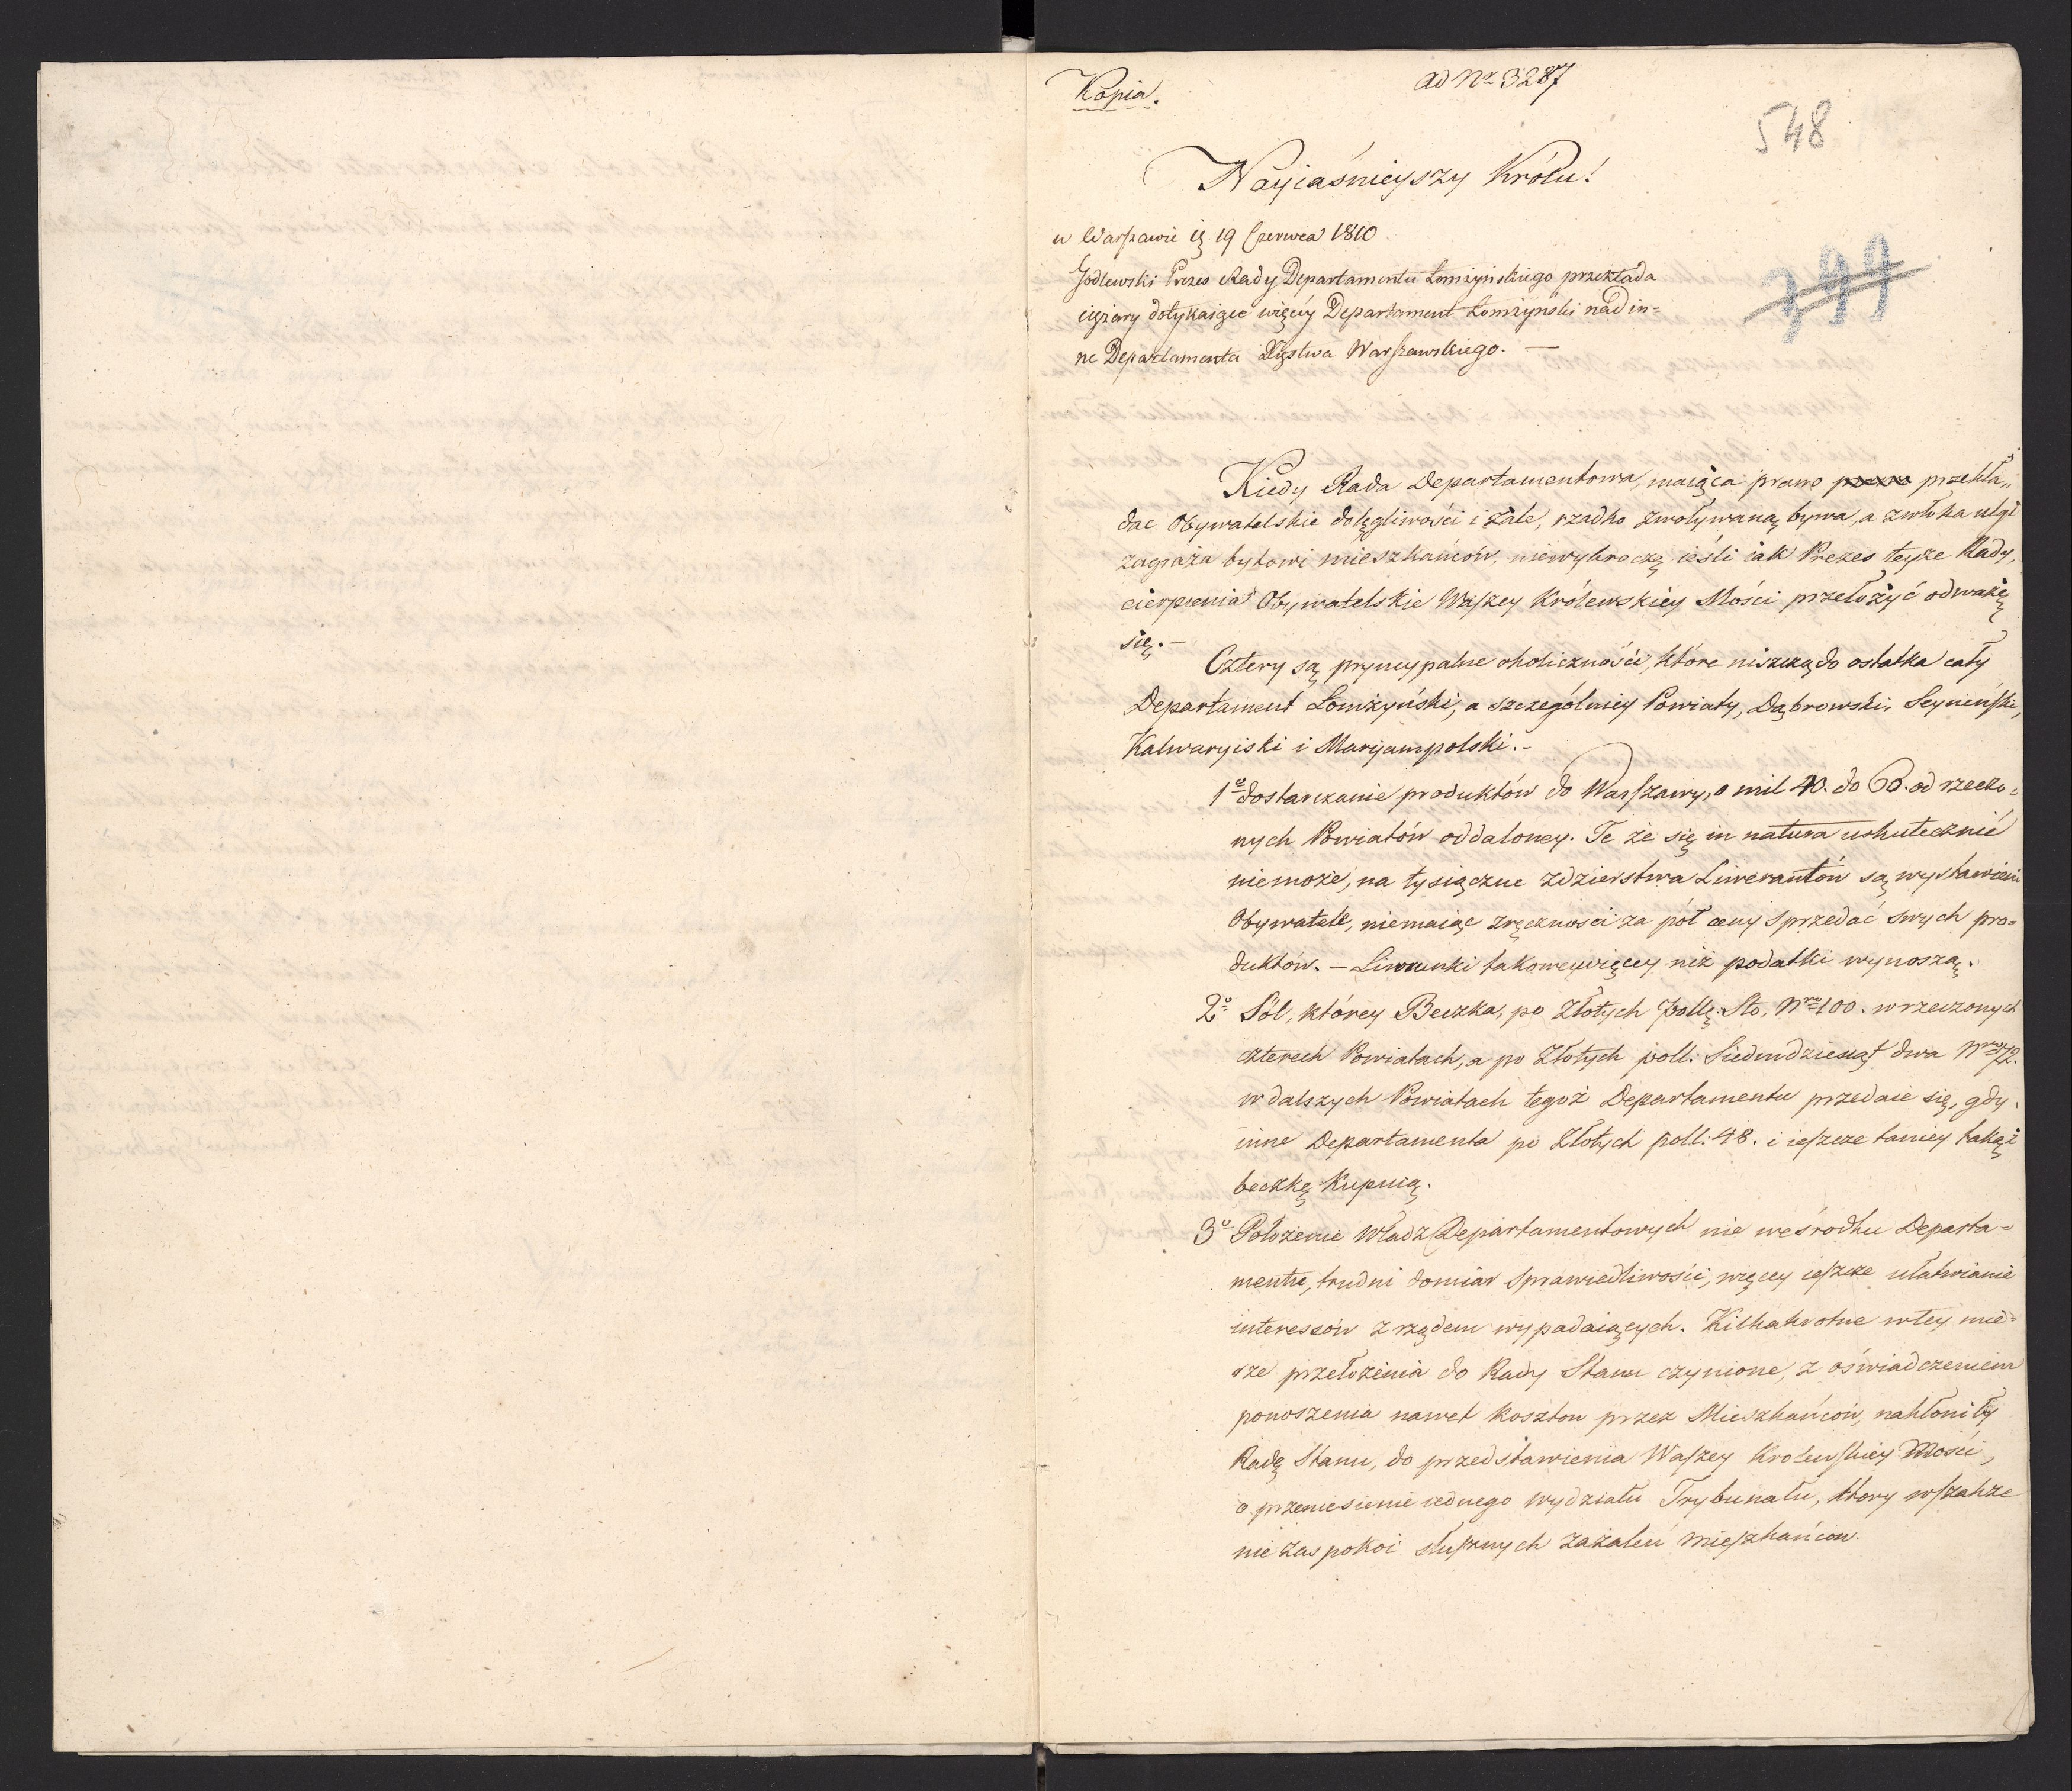 Kopia.
ad Nro 3287
548
799
Nayiaśnieyszy Królu!
w Warszawie 19 Czerwca 1810.
Godlewski Prezes Rady Departamentu Łomżyńskiego przekłada
ciężary dotykaiące więcéy Departament Łomżyński nad in=
ne Departamenta Xięstwa Warszawskiego. —
Kiedy Rada Departamentowa, maiąca prawo przekła„
dac Obywatelskie dolęgliwości i żale, rzadko zwoływaną bywa, a zwłoka ulgi
zagraża bytowi mieszkańców, niewykroczę ieśli iak Prezes teyże Rady,
cierpienia Obywatelskie Waszey Królewskiéy Mości przełożyć odważę
się. —
Cztery są pryncypalne okoliczności, które niszczą do ostatka cały
Departament Łomżyński, a szczególniey Powiaty, Dąbrowski, Seyneński,
Kalwaryiski i Maryampolski. –
1o dostarczanie produktów do Warszawy, o mil 40. do 60. od rzeczo=
nych Powiatów oddaloney. Te że się in natura uskutecznić
niemoże, na tysiączne zdzierstwa Liwerantów są wystawieni
Obywatele, niemaiąc zręczności za pół ceny sprzedać swych pro=
duktów. – Liwrunki takowe więcey niż podatki wynoszą.
2o Sól, którey Beczka, po Złotych poll: Sto, Nro 100. w rzeczonych
czterech Powiatach, a po Złotych poll: Siedmdziesiąt dwa Nro 72.
w dalszych Powiatach tegoż Departamentu przedaie się, gdy
inne Departamenta po Złotych poll: 48. i ieszcze taniey takąż
beczkę kupuią.
3o Położenie Władz Departamentowych nie weśrodku Departa=
mentu, trudni domiar sprawiedliwości, więcey ieszcze ułatwianie
interessów z rządem wypadaiących. Kilkakrotne w tey mie=
rze przełożenia do Rady Stanu czynione, z oświadczeniem
ponoszenia nawet kosztow przez Mieszkańców, nakłoniły
Radę Stanu, do przedstawienia Waszey Krolewskiey Mości,
o przeniesienie iednego wydziału Trybunału, ktory wszakże
nie zaspokoi słusznych zażaleń mieszkańcow.